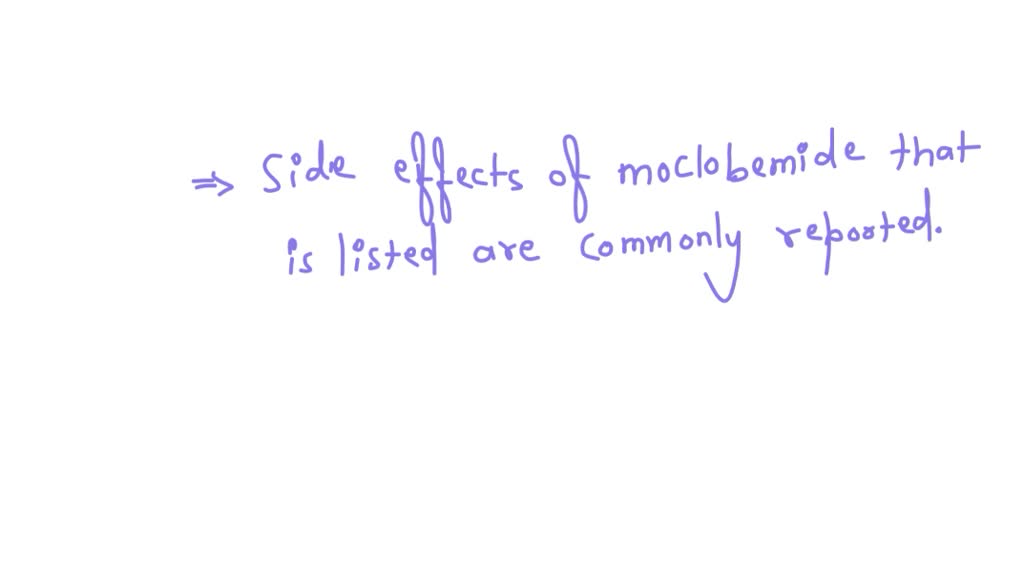 ⇒ Side effects of moclobemide that
is listed are commonly reported.